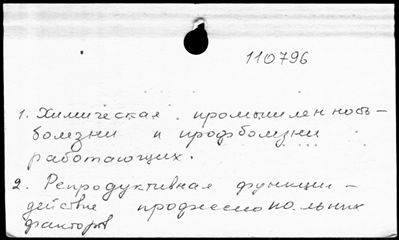 110796
1. Химическая промышленность –
болезни и профболезни
работающих.
2. Репродуктивная функции –
действие профессиональных
факторов